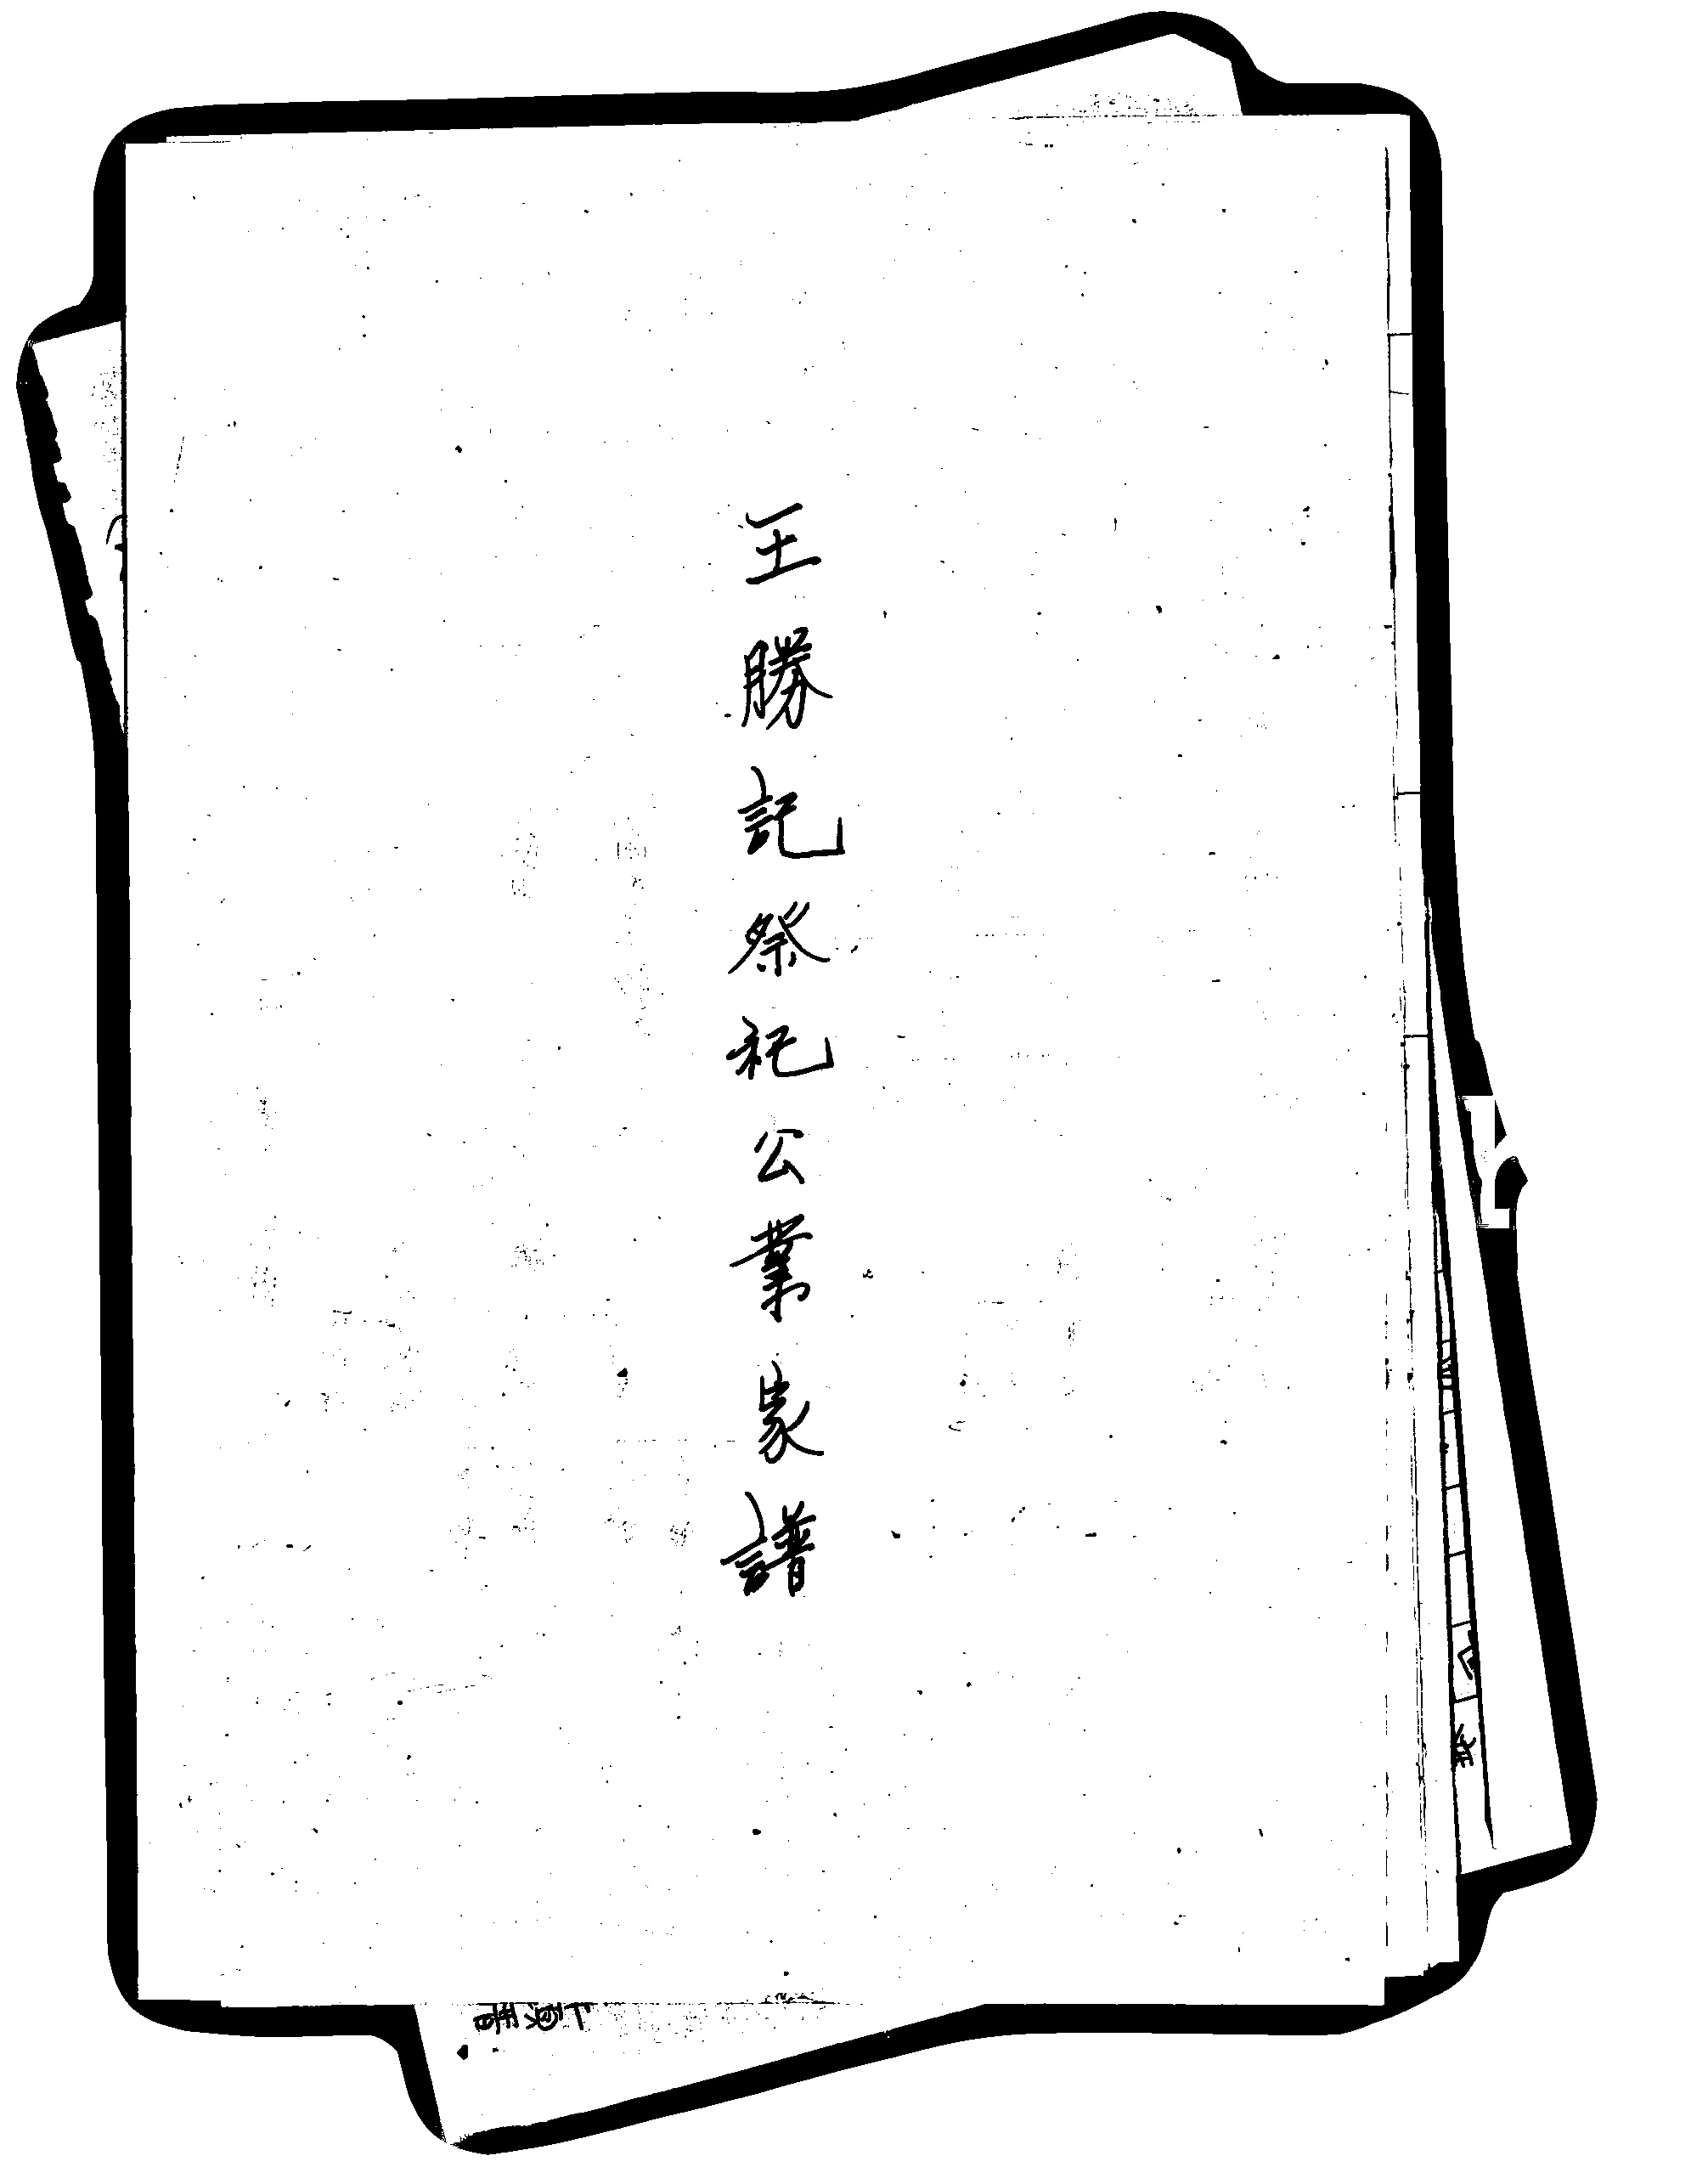 王勝記祭祀公業家譜